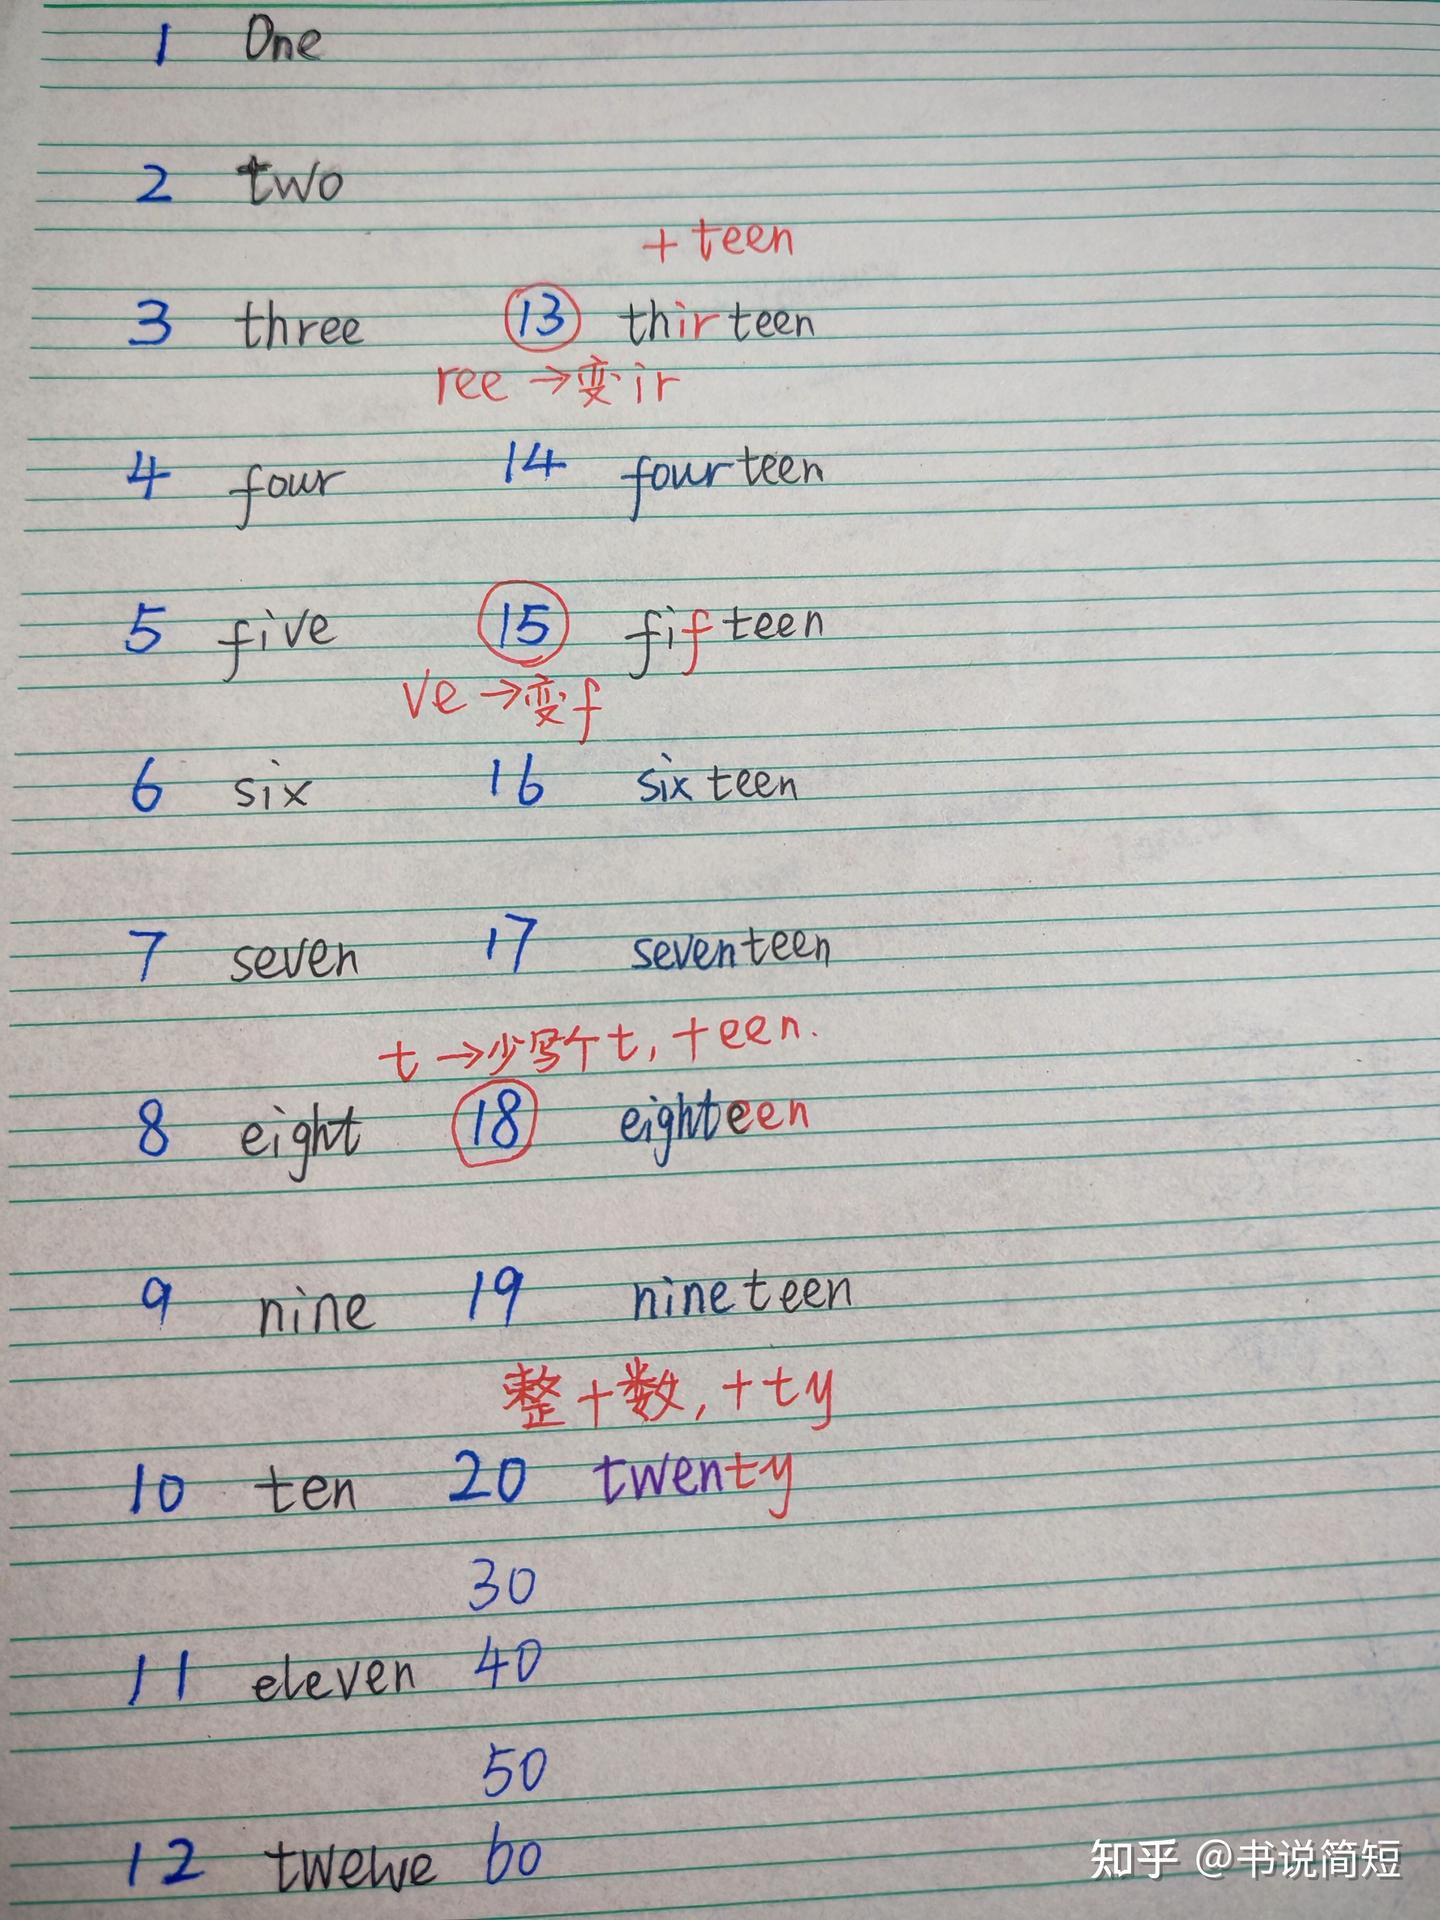 1 One
2 two
+ teen
3 three 13 thirteen
ree → 变 ir
4 four 14 fourteen
5 five 15 fifteen
ve → 变 f
6 six 16 sixteen
7 seven 17 seventeen
t → 少写个 t, + een.
8 eight 18 eighteen
9 nine 19 nineteen
整十数, + ty
10 ten 20 twenty
30
11 eleven 40
50
12 twelve 60
知乎 @书说简短